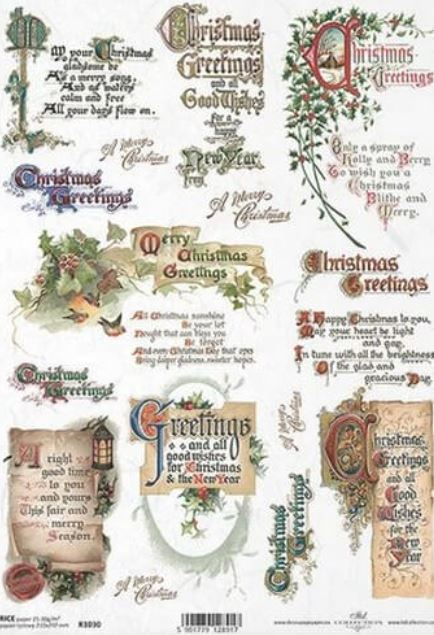 May your Christmas
gladsome be
As a merry song.
And as waters
calm and free
All your days flow on.
Christmas
Greetings
and all
Good Wishes
for a
happy
New Year.
From
Christmas
Greetings
Only a spray of
Holly and Berry
To wish you a
Christmas
Blithe and
Merry.
A Merry
Christmas
Christmas
Greetings
A Merry
Christmas
Merry
Christmas
Greetings
All Christmas sunshine
Be your lot
Nought that can bless you
Be forgot
And every Christmas Day that opes
Bring deeper gladness, sweeter hopes.
Christmas
Greetings
A Happy Christmas to you,
May your heart be light
and gay,
In tune with all the brightness
Of the glad and
gracious Day.
Christmas
Greetings
A Merry
Christmas
A right
good time
to you
and yours
This fair and
merry
Season.
Greetings
and all
good wishes
for Christmas
& the New Year
Christmas
Greetings
Christmas
Greetings
and all
Good
Wishes
for the
New
Year
A Merry
Christmas
RICE paper 25-30g/m²
R1030
5 901779 128917